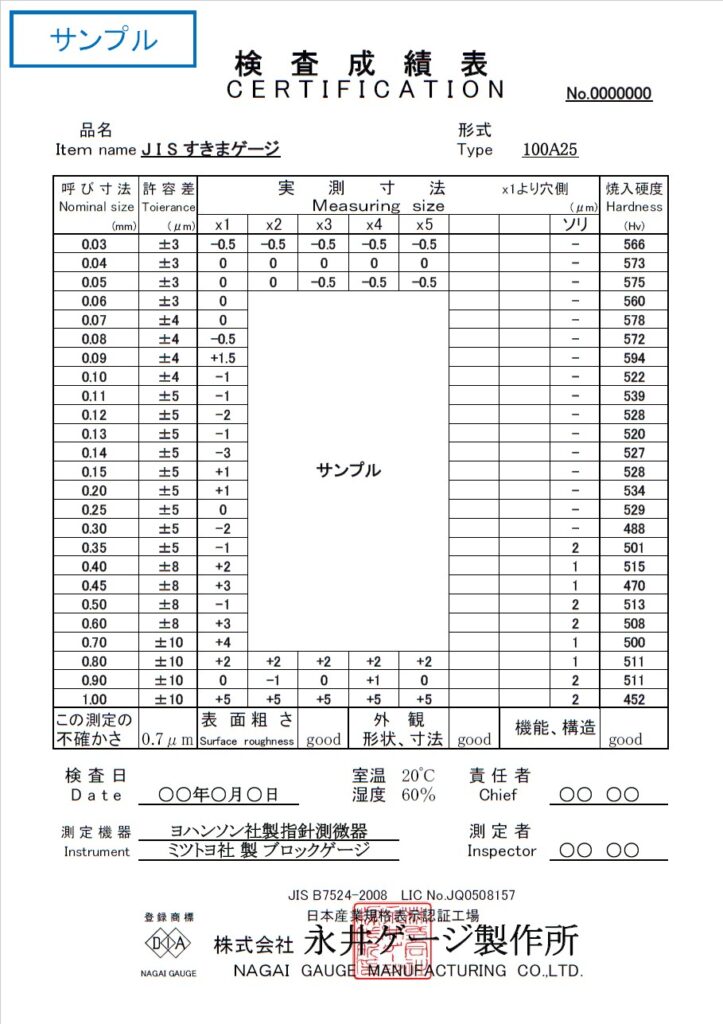 サンプル
検査成績表
CERTIFICATION
No.0000000
品名
Item name JISすきまゲージ
形式
Type 100A25
呼び寸法 許容差 実測寸法 x1より穴側 焼入硬度
Nominal size Toierance Measuring size (μm) Hardness
(mm) (μm) x1 x2 x3 x4 x5 ソリ (Hv)
0.03 ±3 −0.5 −0.5 −0.5 −0.5 −0.5 − 566
0.04 ±3 0 0 0 0 0 − 573
0.05 ±3 0 0 −0.5 −0.5 −0.5 − 575
0.06 ±3 0 − 560
0.07 ±4 0 − 578
0.08 ±4 −0.5 − 572
0.09 ±4 +1.5 − 594
0.10 ±4 −1 − 522
0.11 ±5 −1 − 539
0.12 ±5 −2 − 528
0.13 ±5 −1 − 520
0.14 ±5 −3 − 527
0.15 ±5 +1 サンプル − 528
0.20 ±5 +1 − 534
0.25 ±5 0 − 529
0.30 ±5 −2 − 488
0.35 ±5 −1 2 501
0.40 ±8 +2 1 515
0.45 ±8 +3 1 470
0.50 ±8 −1 2 513
0.60 ±8 +3 2 508
0.70 ±10 +4 1 500
0.80 ±10 +2 +2 +2 +2 +2 1 511
0.90 ±10 0 −1 0 +1 0 2 511
1.00 ±10 +5 +5 +5 +5 +5 2 452
この測定の不確かさ 0.7μm
表面粗さ
Surface roughness good
外観
形状、寸法 good
機能、構造 good
検査日
Date 〇〇年〇月〇日
室温 20℃
湿度 60%
責任者
Chief 〇〇 〇〇
測定機器 ヨハンソン社製指針測微器
Instrument ミツトヨ社 製 ブロックゲージ
測定者
Inspector 〇〇 〇〇
JIS B7524-2008 LIC No.JQ0508157
日本産業規格表示認証工場
登録商標
DIA
NAGAI GAUGE
株式会社 永井ゲージ製作所
NAGAI GAUGE MANUFACTURING CO.,LTD.